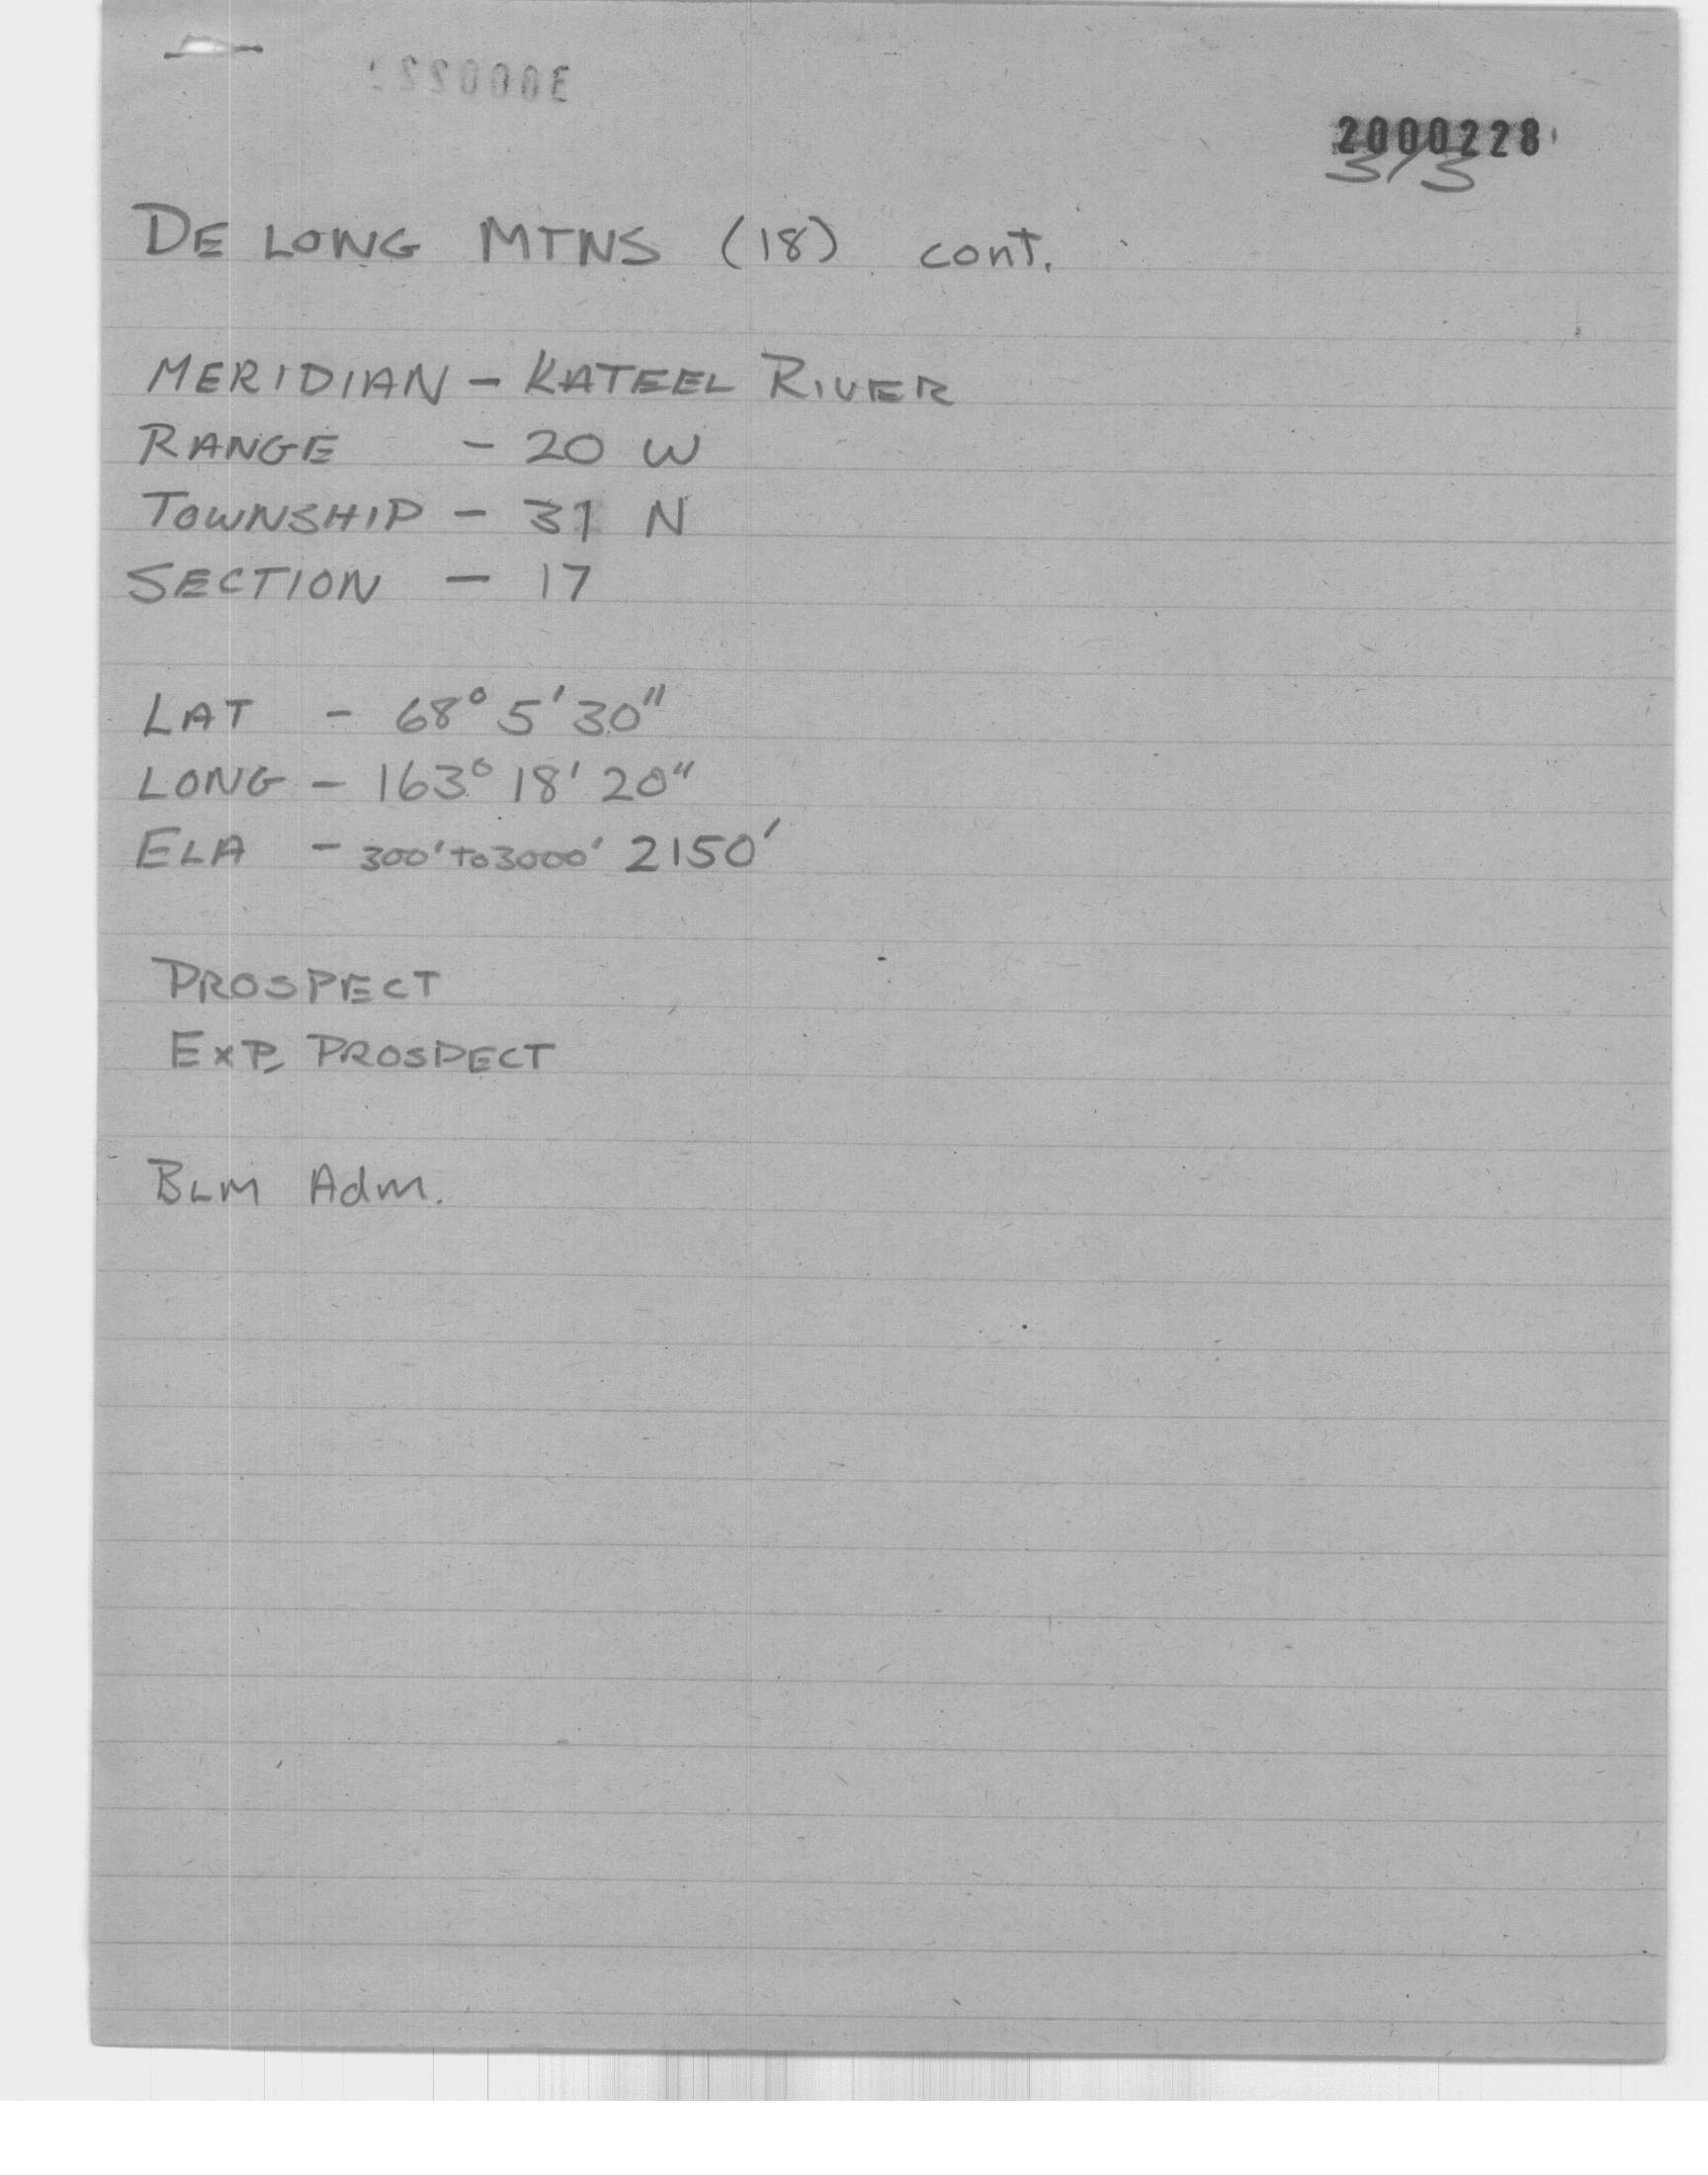 2000228
3/3
DE LONG MTNS (18) cont.
MERIDIAN - KATEEL RIVER
RANGE - 20 W
TOWNSHIP - 31 N
SECTION - 17
LAT - 68° 5' 30"
LONG - 163° 18' 20"
ELA - 300' to 3000' 2150'
PROSPECT
EXP. PROSPECT
BLM Adm.